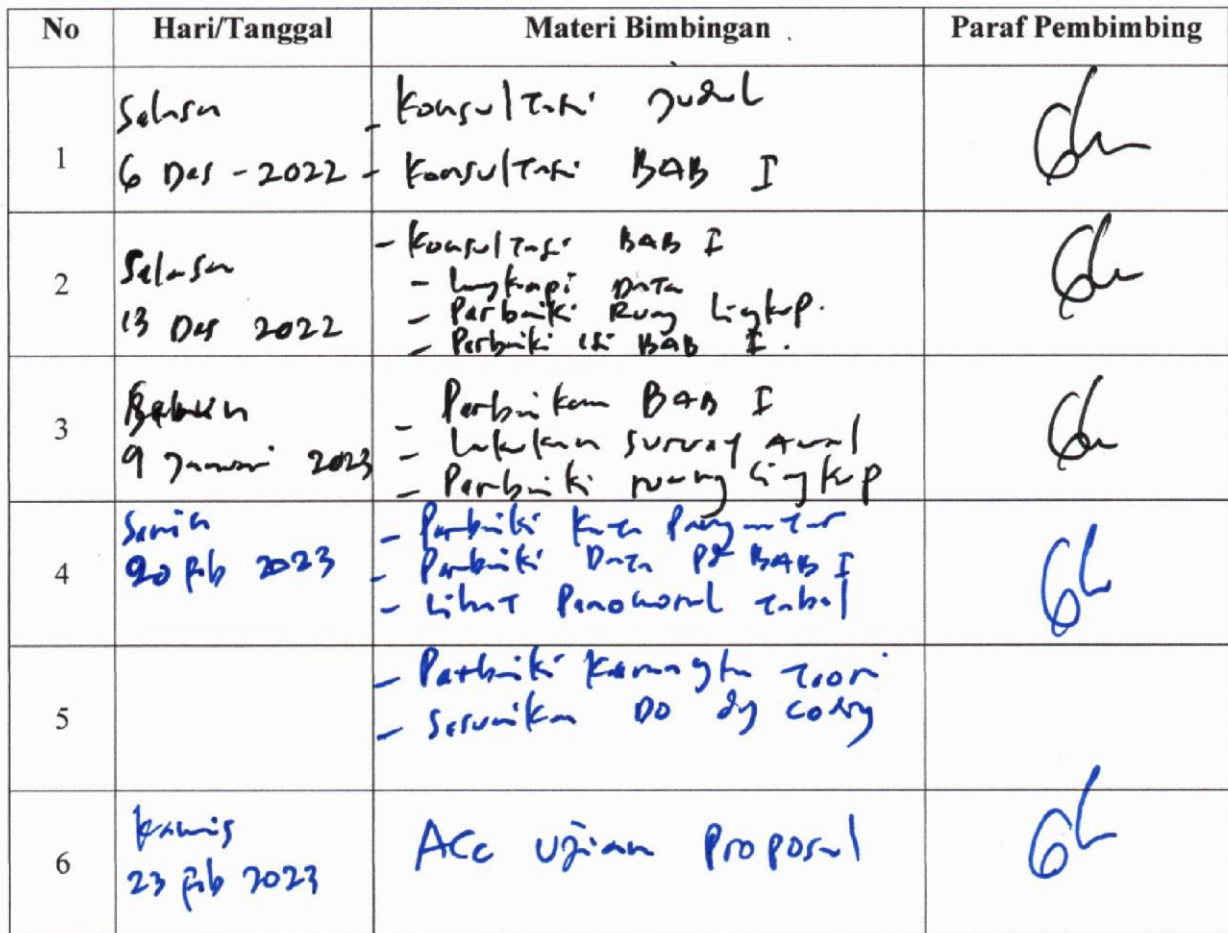 No Hari/Tanggal Materi Bimbingan Paraf Pembimbing
1
Selasa
6 Des - 2022
- Konsultasi Judul
- Konsultasi BAB I
2
Selasa
13 Des 2022
- Konsultasi BAB I
- Lengkapi Data
- Perbaiki Ruang Lingkup.
- Perbaiki isi BAB I.
3
9 Januari 2023
- Perbaikan BAB I
- Lakukan survey awal
- Perbaiki ruang lingkup
4
Senin
20 Feb 2023
- Perbaiki Kata Pengantar
- Perbaiki Data pd BAB I
- Lihat Penomoral tabel
5
- Perbaiki Kerangka Teori
- Sesuaikan DO dg coding
6
Kamis
23 Feb 2023
Acc Ujian Proposal